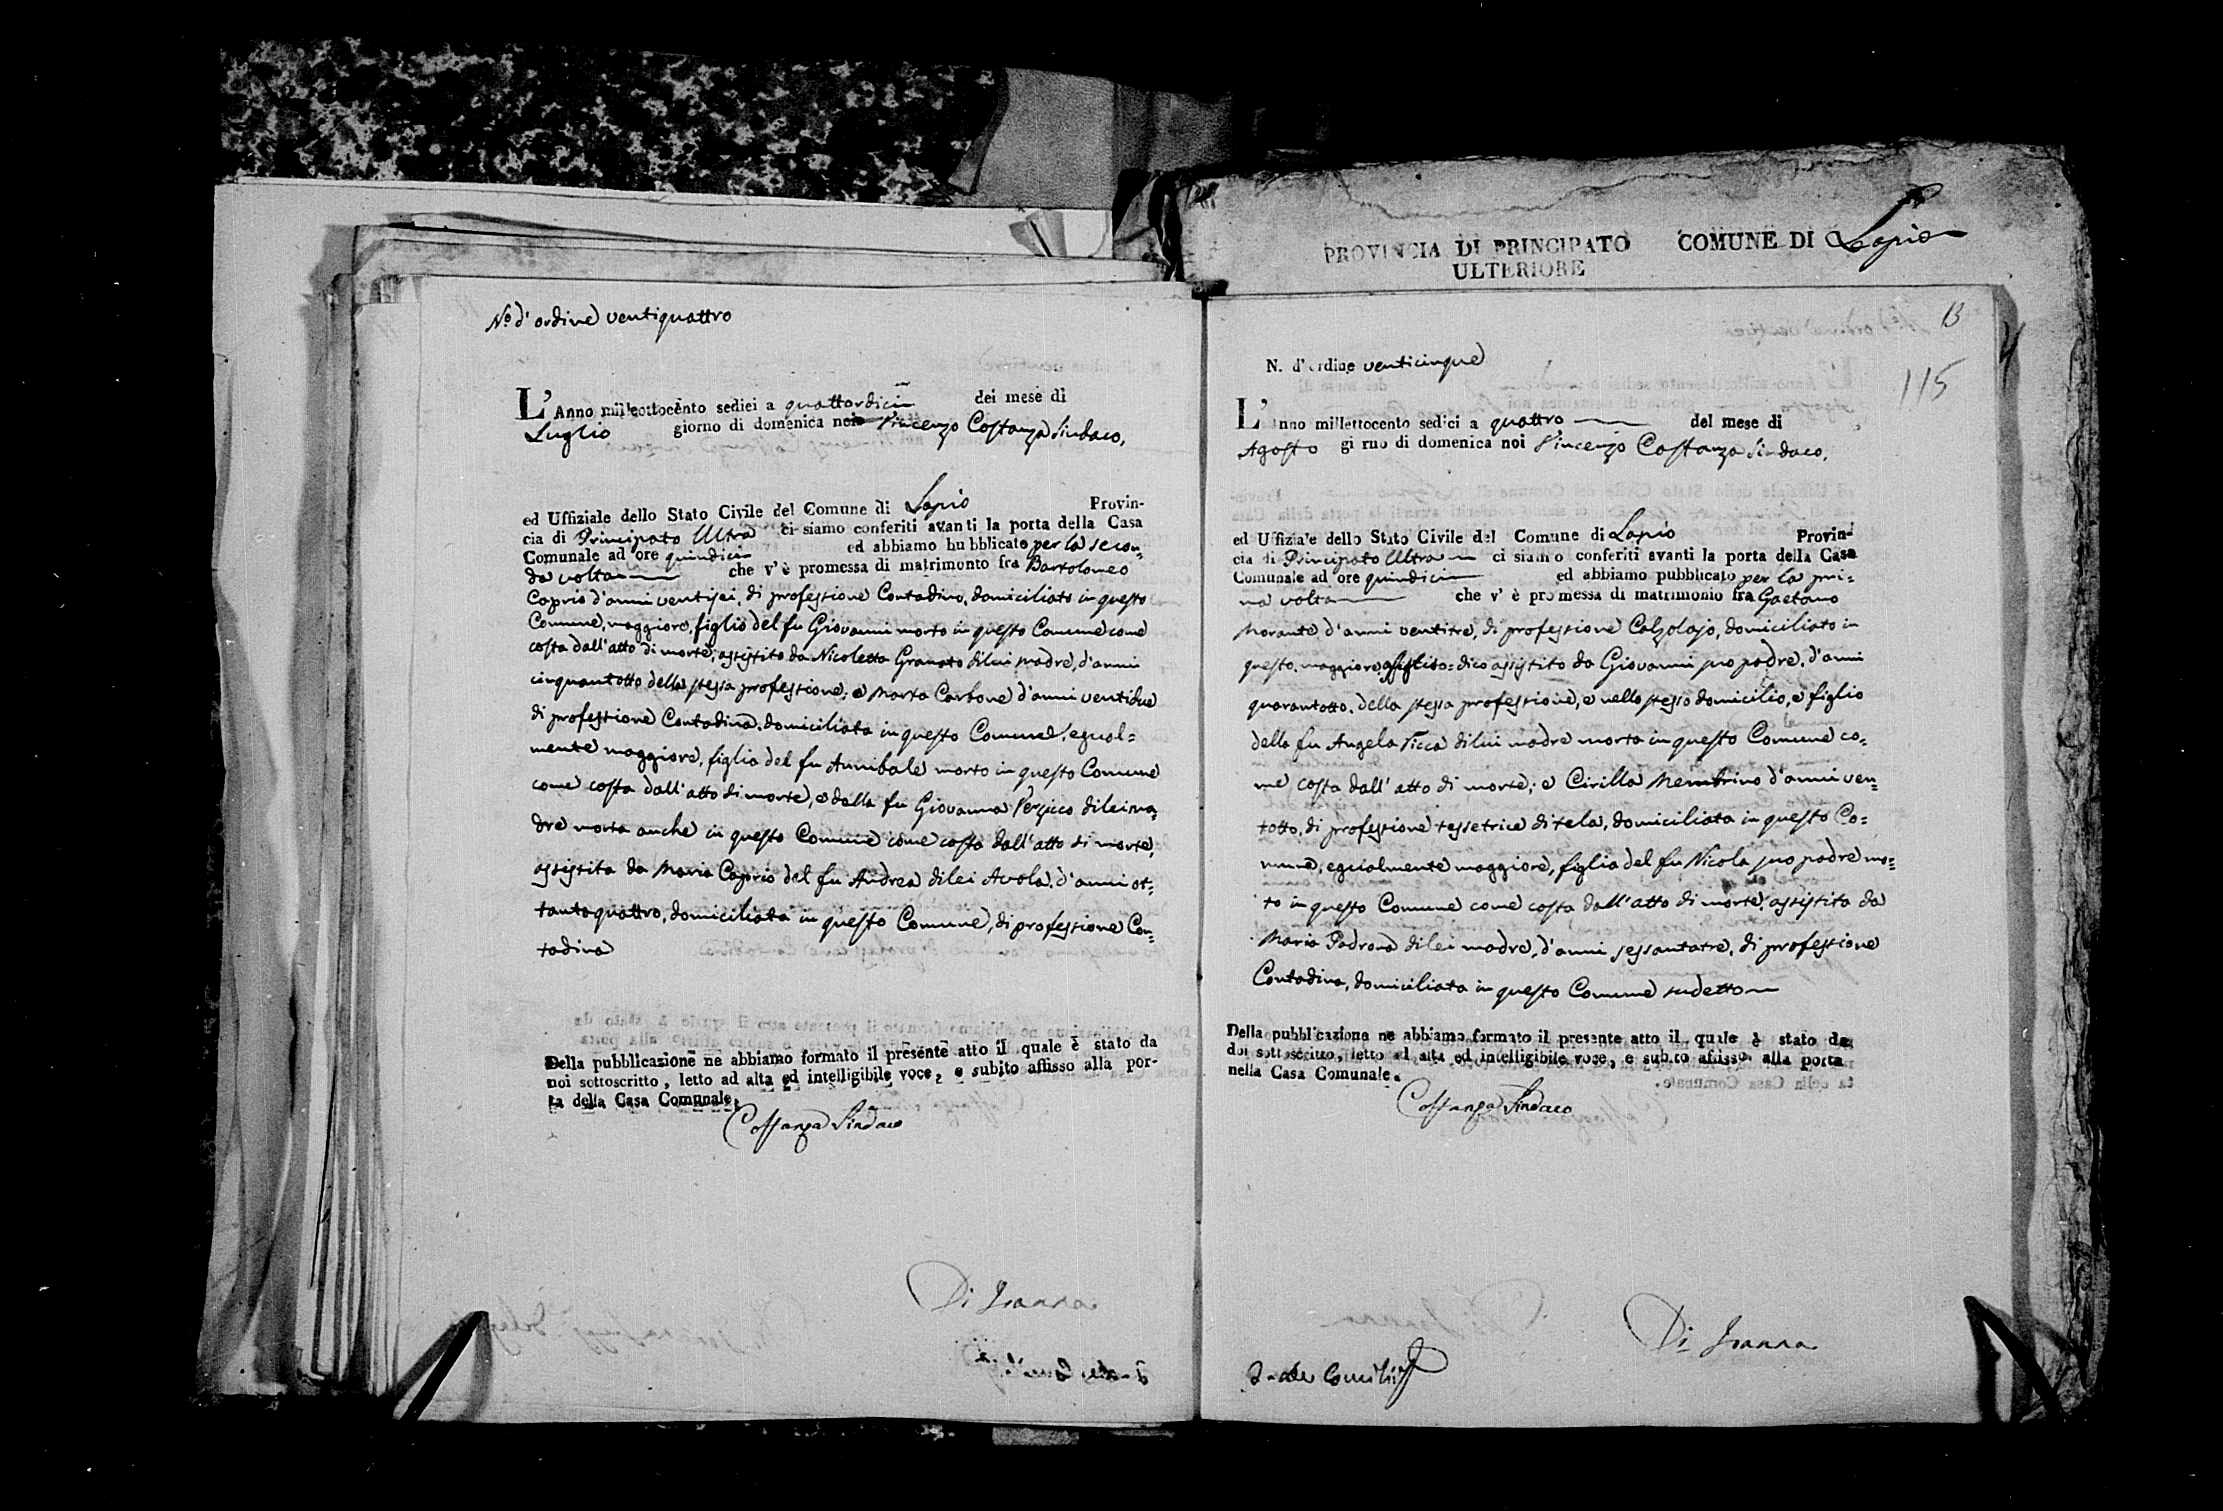 N.º d'ordine ventiquattro
L' Anno milleottocento sedici a quattordici dei mese di
Luglio giorno di domenica noi Vincenzo Costanza Sindaco,
ed Uffiziale dello Stato Civile del Comune di Lapio Provin-
cia di Principato Ultra ci siamo conferiti avanti la porta della Casa
Comunale ad ore quindici ed abbiamo bubblicato per la secon-
da volta che v' è promessa di matrimonto fra Bartolomeo
Caprio d'anni ventisei, di professione Contadino, domiciliato in questo
Comune, maggiore, figlio del fu Giovanni morto in questo Comune come
costa dall'atto di morte, assistito da Nicoletta Granato di lui madre, d'anni
cinquantotto della stessa professione; e Marta Carbone d'anni ventidue
di professione Contadina, domiciliata in questo Comune, egual=
mente maggiore, figlia del fu Annibale morto in questo Comune
come costa dall'atto di morte, e dalla fu Giovanna di lei ma=
dre morta anche in questo Comune come costa dall'atto di morte,
assistita da Maria Caprio del fu Andrea di lei Avola, d'anni ot=
tantaquattro, domiciliata in questo Comune, di professione Con=
tadina
Della pubblicazione ne abbiamo formato il presente atto il quale è stato da
noi sottoscritto, letto ad alta ed intelligibile voce, e subito affisso alla por-
ta della Casa Comunale.
Costanza Sindaco
Di Ioanna
PROVINCIA DI PRINCIPATO COMUNE DI Lapio
ULTERIORE
13
115
N. d'ordine venticinque
L' Anno millettocento sedici a quattro del mese di
Agosto giorno di domenica noi Vincenzo Costanza Sindaco,
ed Uffiziale dello Stato Civile del Comune di Lapio Provin-
cia di Principato Ultra ci siamo conferiti avanti la porta della Casa
Comunale ad ore quindici ed abbiamo pubblicato per la pri=
ma volta che v' è promessa di matrimonio fra Gaetano
Morante d'anni ventitre, di professione Calzolajo, domiciliato in
questo, maggiore, = dico assistito da Giovanni suo padre, d'anni
quarantotto, della stessa professione, e nello stesso domicilio, e figlio
della fu Angela Ficca di lui madre morta in questo Comune co=
me costa dall'atto di morte; e Cirilla Membrino d'anni ven=
totto, di professione tessetrice di tela, domiciliata in questo Co=
mune, egualmente maggiore, figlia del fu Nicola suo padre mo=
to in questo Comune come costa dall'atto di morte, assistita da
Maria Padrona di lei madre, d'anni sessantatre, di professione
Contadina, domiciliata in questo Comune sudetto
Della pubblicazione ne abbiamo formato il presente atto il quale è stato da
doi sottoscritto, letto ad alta ed intelligibile voce, e subito affisso alla porta
nella Casa Comunale.
Costanza Sindaco
Di Ioanna